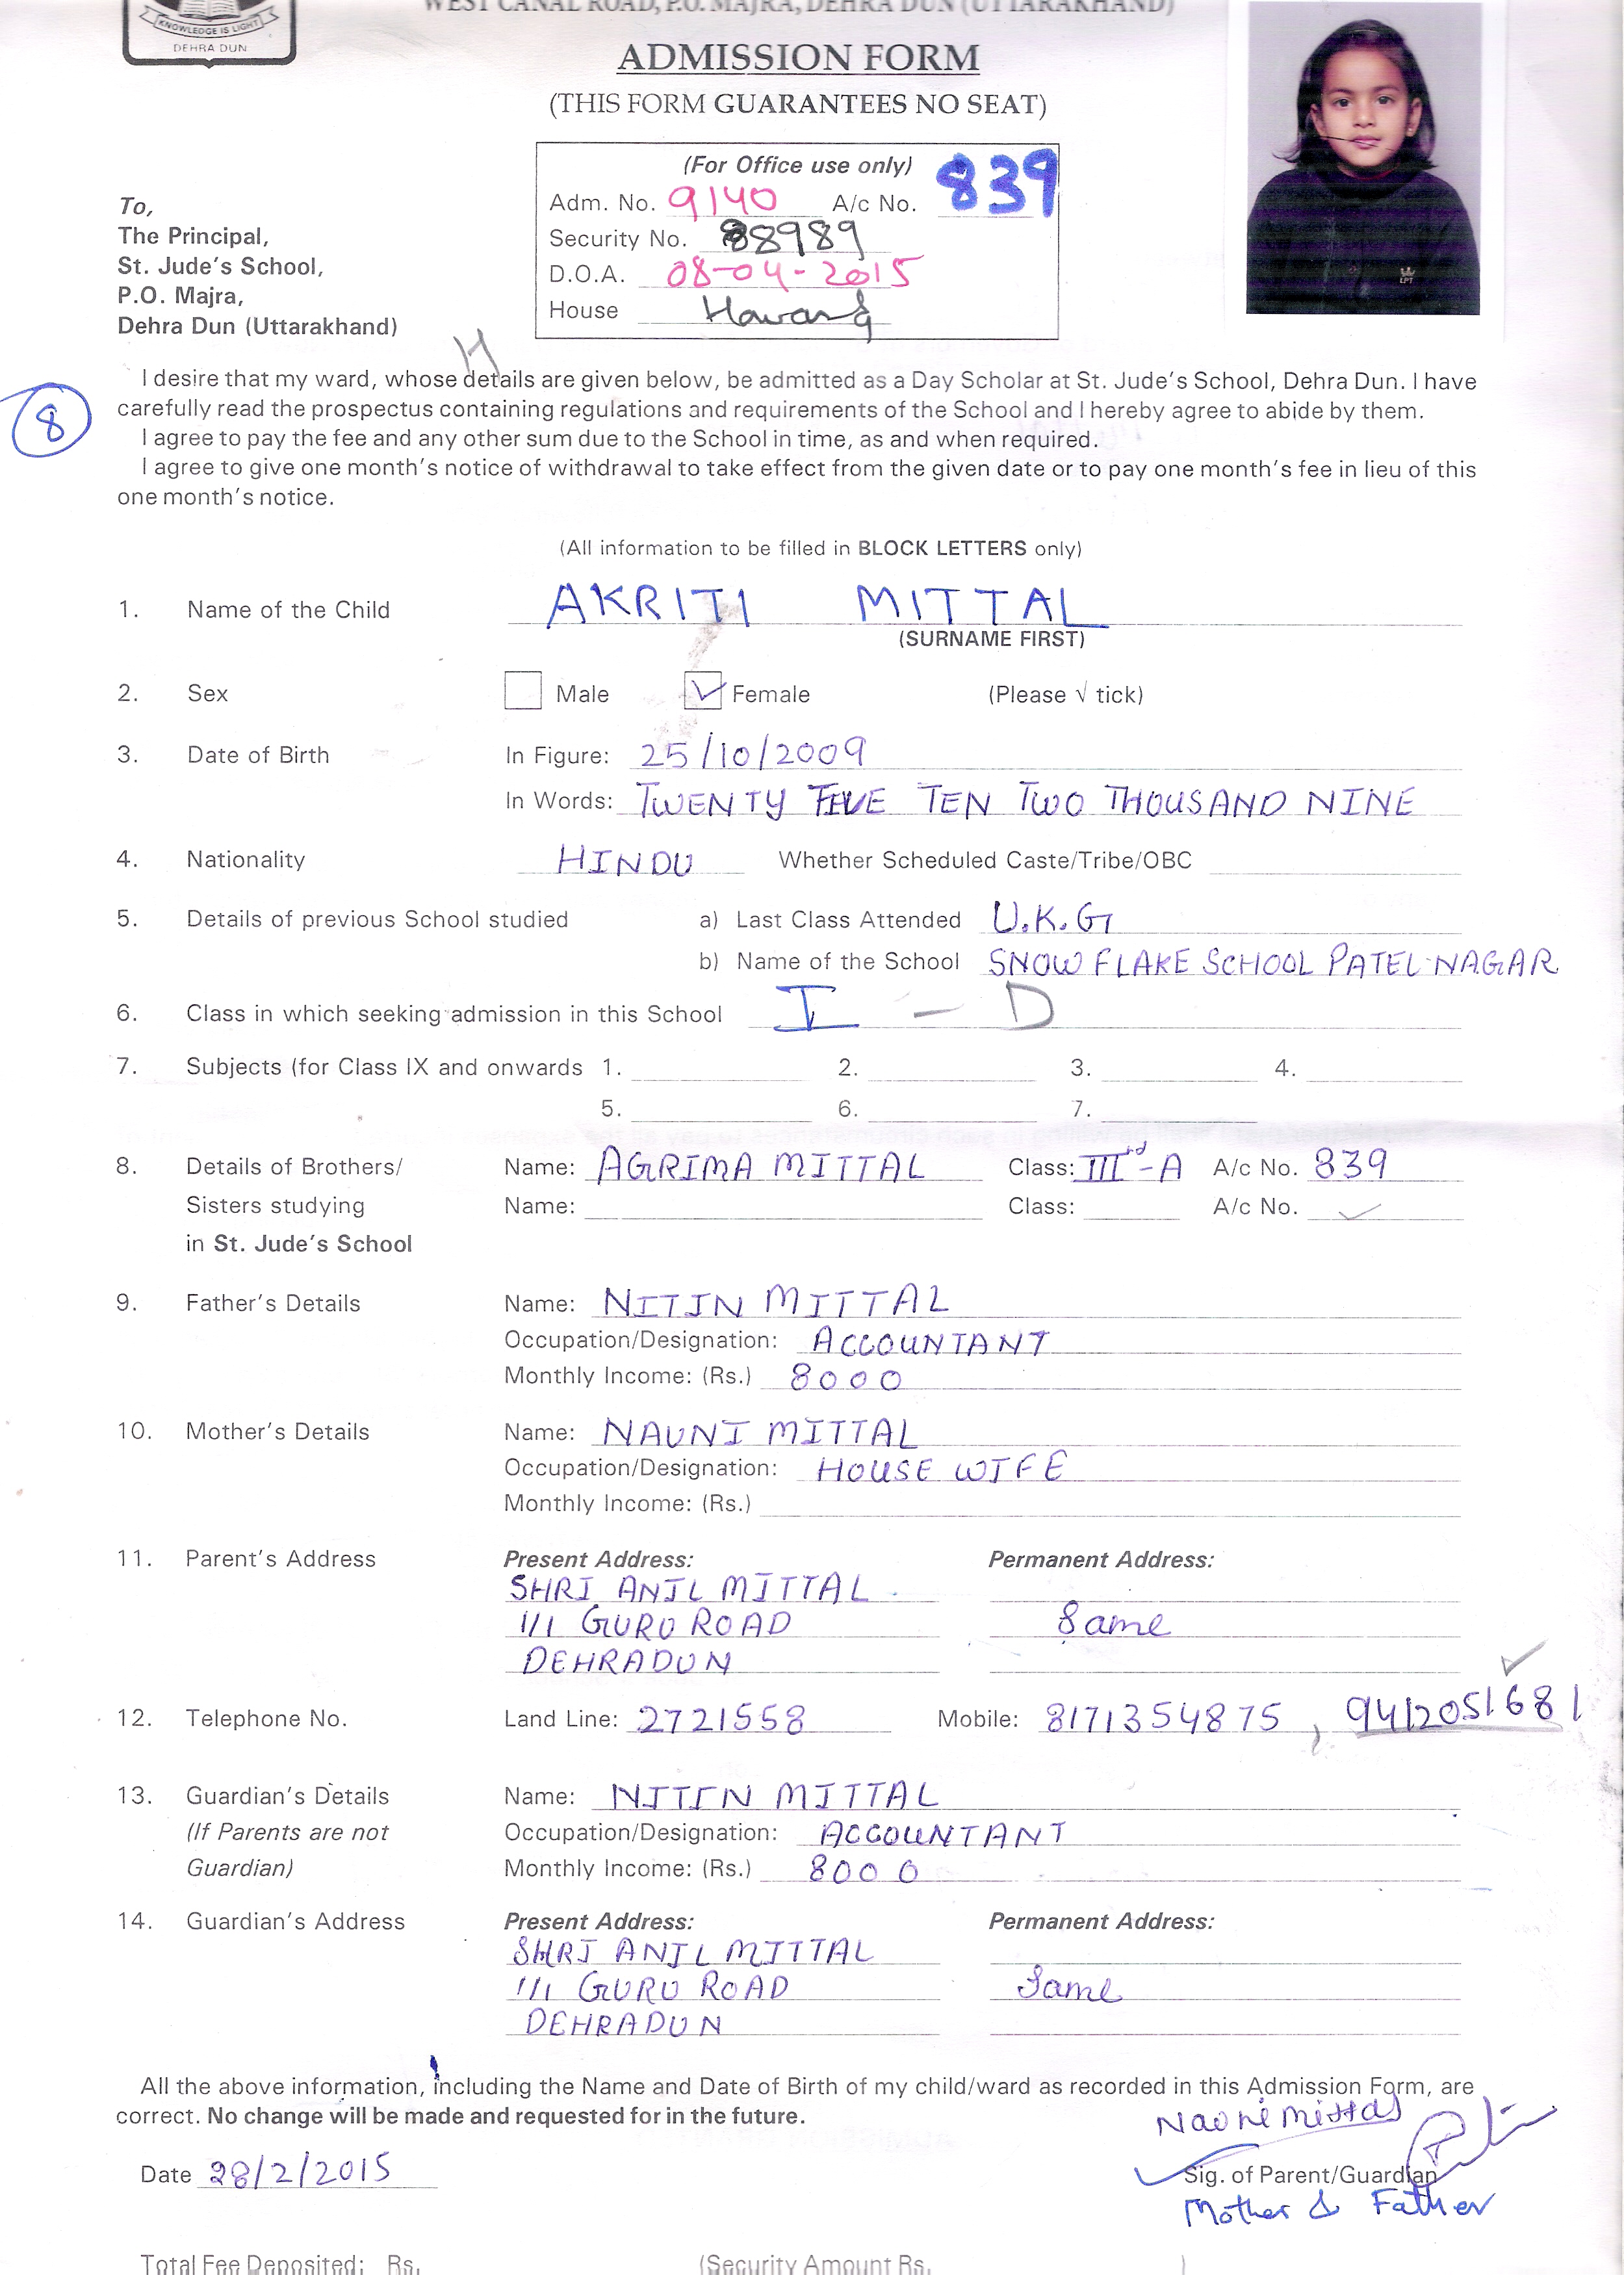 WEST CANAL ROAD, P.O. MAJRA, DEHRA DUN (UTTARAKHAND)
KNOWLEDGE IS LIGHT
DEHRA DUN
ADMISSION FORM
(THIS FORM GUARANTEES NO SEAT)
(For Office use only)
Adm. No. 9140 A/c No. 839
Security No. 88989
D.O.A. 08-04-2015
House
To,
The Principal,
St. Jude's School,
P.O. Majra,
Dehra Dun (Uttarakhand)
H
8
I desire that my ward, whose details are given below, be admitted as a Day Scholar at St. Jude's School, Dehra Dun. I have
carefully read the prospectus containing regulations and requirements of the School and I hereby agree to abide by them.
I agree to pay the fee and any other sum due to the School in time, as and when required.
I agree to give one month's notice of withdrawal to take effect from the given date or to pay one month's fee in lieu of this
one month's notice.
(All information to be filled in BLOCK LETTERS only)
1. Name of the Child AKRITI MITTAL
(SURNAME FIRST)
2. Sex Male ✓ Female (Please √ tick)
3. Date of Birth In Figure: 25/10/2009
In Words: TWENTY FIVE TEN TWO THOUSAND NINE
4. Nationality HINDU Whether Scheduled Caste/Tribe/OBC
5. Details of previous School studied a) Last Class Attended U.K.G
b) Name of the School SNOW FLAKE SCHOOL PATEL NAGAR
6. Class in which seeking admission in this School I - D
7. Subjects (for Class IX and onwards 1. 2. 3. 4.
5. 6. 7.
8. Details of Brothers/ Name: AGRIMA MITTAL Class: IIIrd-A A/c No. 839
Sisters studying Name: Class: A/c No.
in St. Jude's School
9. Father's Details Name: NITIN MITTAL
Occupation/Designation: ACCOUNTANT
Monthly Income: (Rs.) 8000
10. Mother's Details Name: NAUNI MITTAL
Occupation/Designation: HOUSE WIFE
Monthly Income: (Rs.)
11. Parent's Address Present Address: Permanent Address:
SHRI ANIL MITTAL
1/1 GURU ROAD Same
DEHRADUN
12. Telephone No. Land Line: 2721558 Mobile: 8171354875, 9412051681
13. Guardian's Details Name: NITIN MITTAL
(If Parents are not Occupation/Designation: ACCOUNTANT
Guardian) Monthly Income: (Rs.) 8000
14. Guardian's Address Present Address: Permanent Address:
SHRI ANIL MITTAL
1/1 GURU ROAD Same
DEHRADUN
All the above information, including the Name and Date of Birth of my child/ward as recorded in this Admission Form, are
correct. No change will be made and requested for in the future.
Nauni Mittal
Date 28/2/2015
Sig. of Parent/Guardian
Mother & Father
Total Fee Deposited: Rs. (Security Amount Rs. )